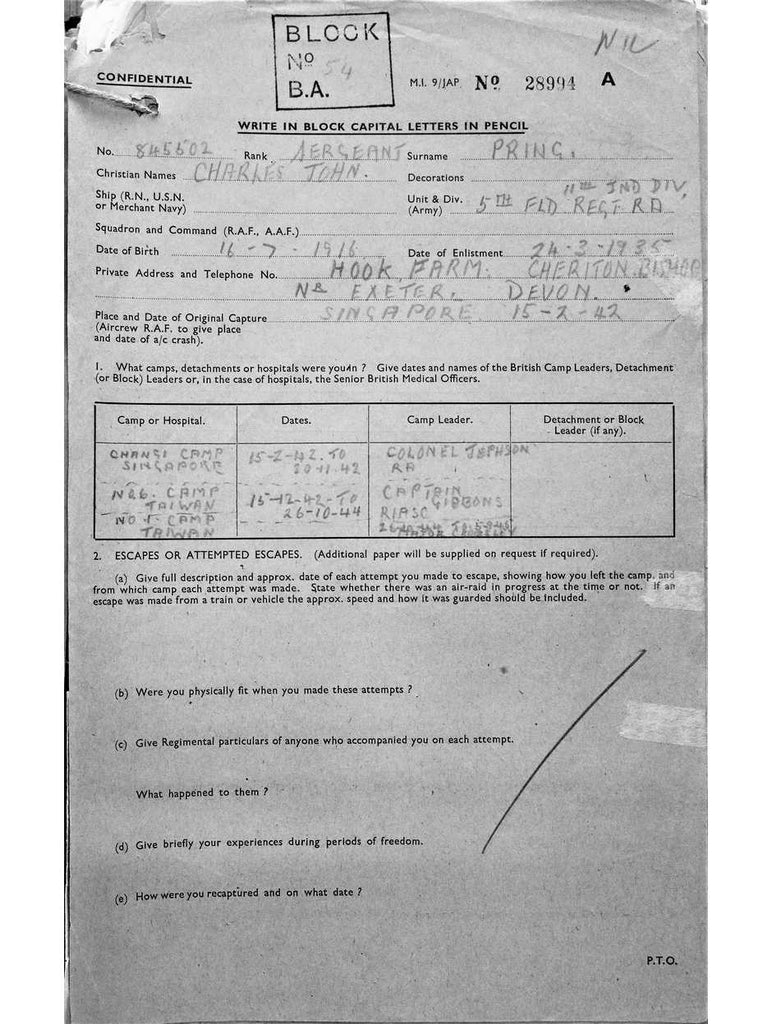 BLOCK
No 54
B.A.
NIL
CONFIDENTIAL
M.I. 9/JAP No 28994 A
WRITE IN BLOCK CAPITAL LETTERS IN PENCIL
No. 845502 Rank SERGEANT Surname PRING.
Christian Names CHARLES JOHN. Decorations
11TH IND DIV,
Ship (R.N., U.S.N. or Merchant Navy)
Unit & Div. (Army) 5TH FLD REGT RA
Squadron and Command (R.A.F., A.A.F.)
Date of Birth 16-7-1916 Date of Enlistment 24-3-1935
Private Address and Telephone No. HOOK FARM. CHERITON BISHOP
NR EXETER. DEVON.
Place and Date of Original Capture SINGAPORE 15-2-42
(Aircrew R.A.F. to give place
and date of a/c crash).
1. What camps, detachments or hospitals were you in ? Give dates and names of the British Camp Leaders, Detachment
(or Block) Leaders or, in the case of hospitals, the Senior British Medical Officers.
Camp or Hospital. Dates. Camp Leader. Detachment or Block
Leader (if any).
CHANGI CAMP 15-2-42 TO COLONEL JEPHSON
SINGAPORE 20-11-42 RA
NO6. CAMP 15-12-42-TO CAPTAIN GIBBONS
TAIWAN 26-10-44 RIASC
NO 1. CAMP
TAIWAN MAJOR
2. ESCAPES OR ATTEMPTED ESCAPES. (Additional paper will be supplied on request if required).
(a) Give full description and approx. date of each attempt you made to escape, showing how you left the camp, and
from which camp each attempt was made. State whether there was an air-raid in progress at the time or not. If an
escape was made from a train or vehicle the approx. speed and how it was guarded should be included.
(b) Were you physically fit when you made these attempts ?
(c) Give Regimental particulars of anyone who accompanied you on each attempt.
What happened to them ?
(d) Give briefly your experiences during periods of freedom.
(e) How were you recaptured and on what date ?
P.T.O.